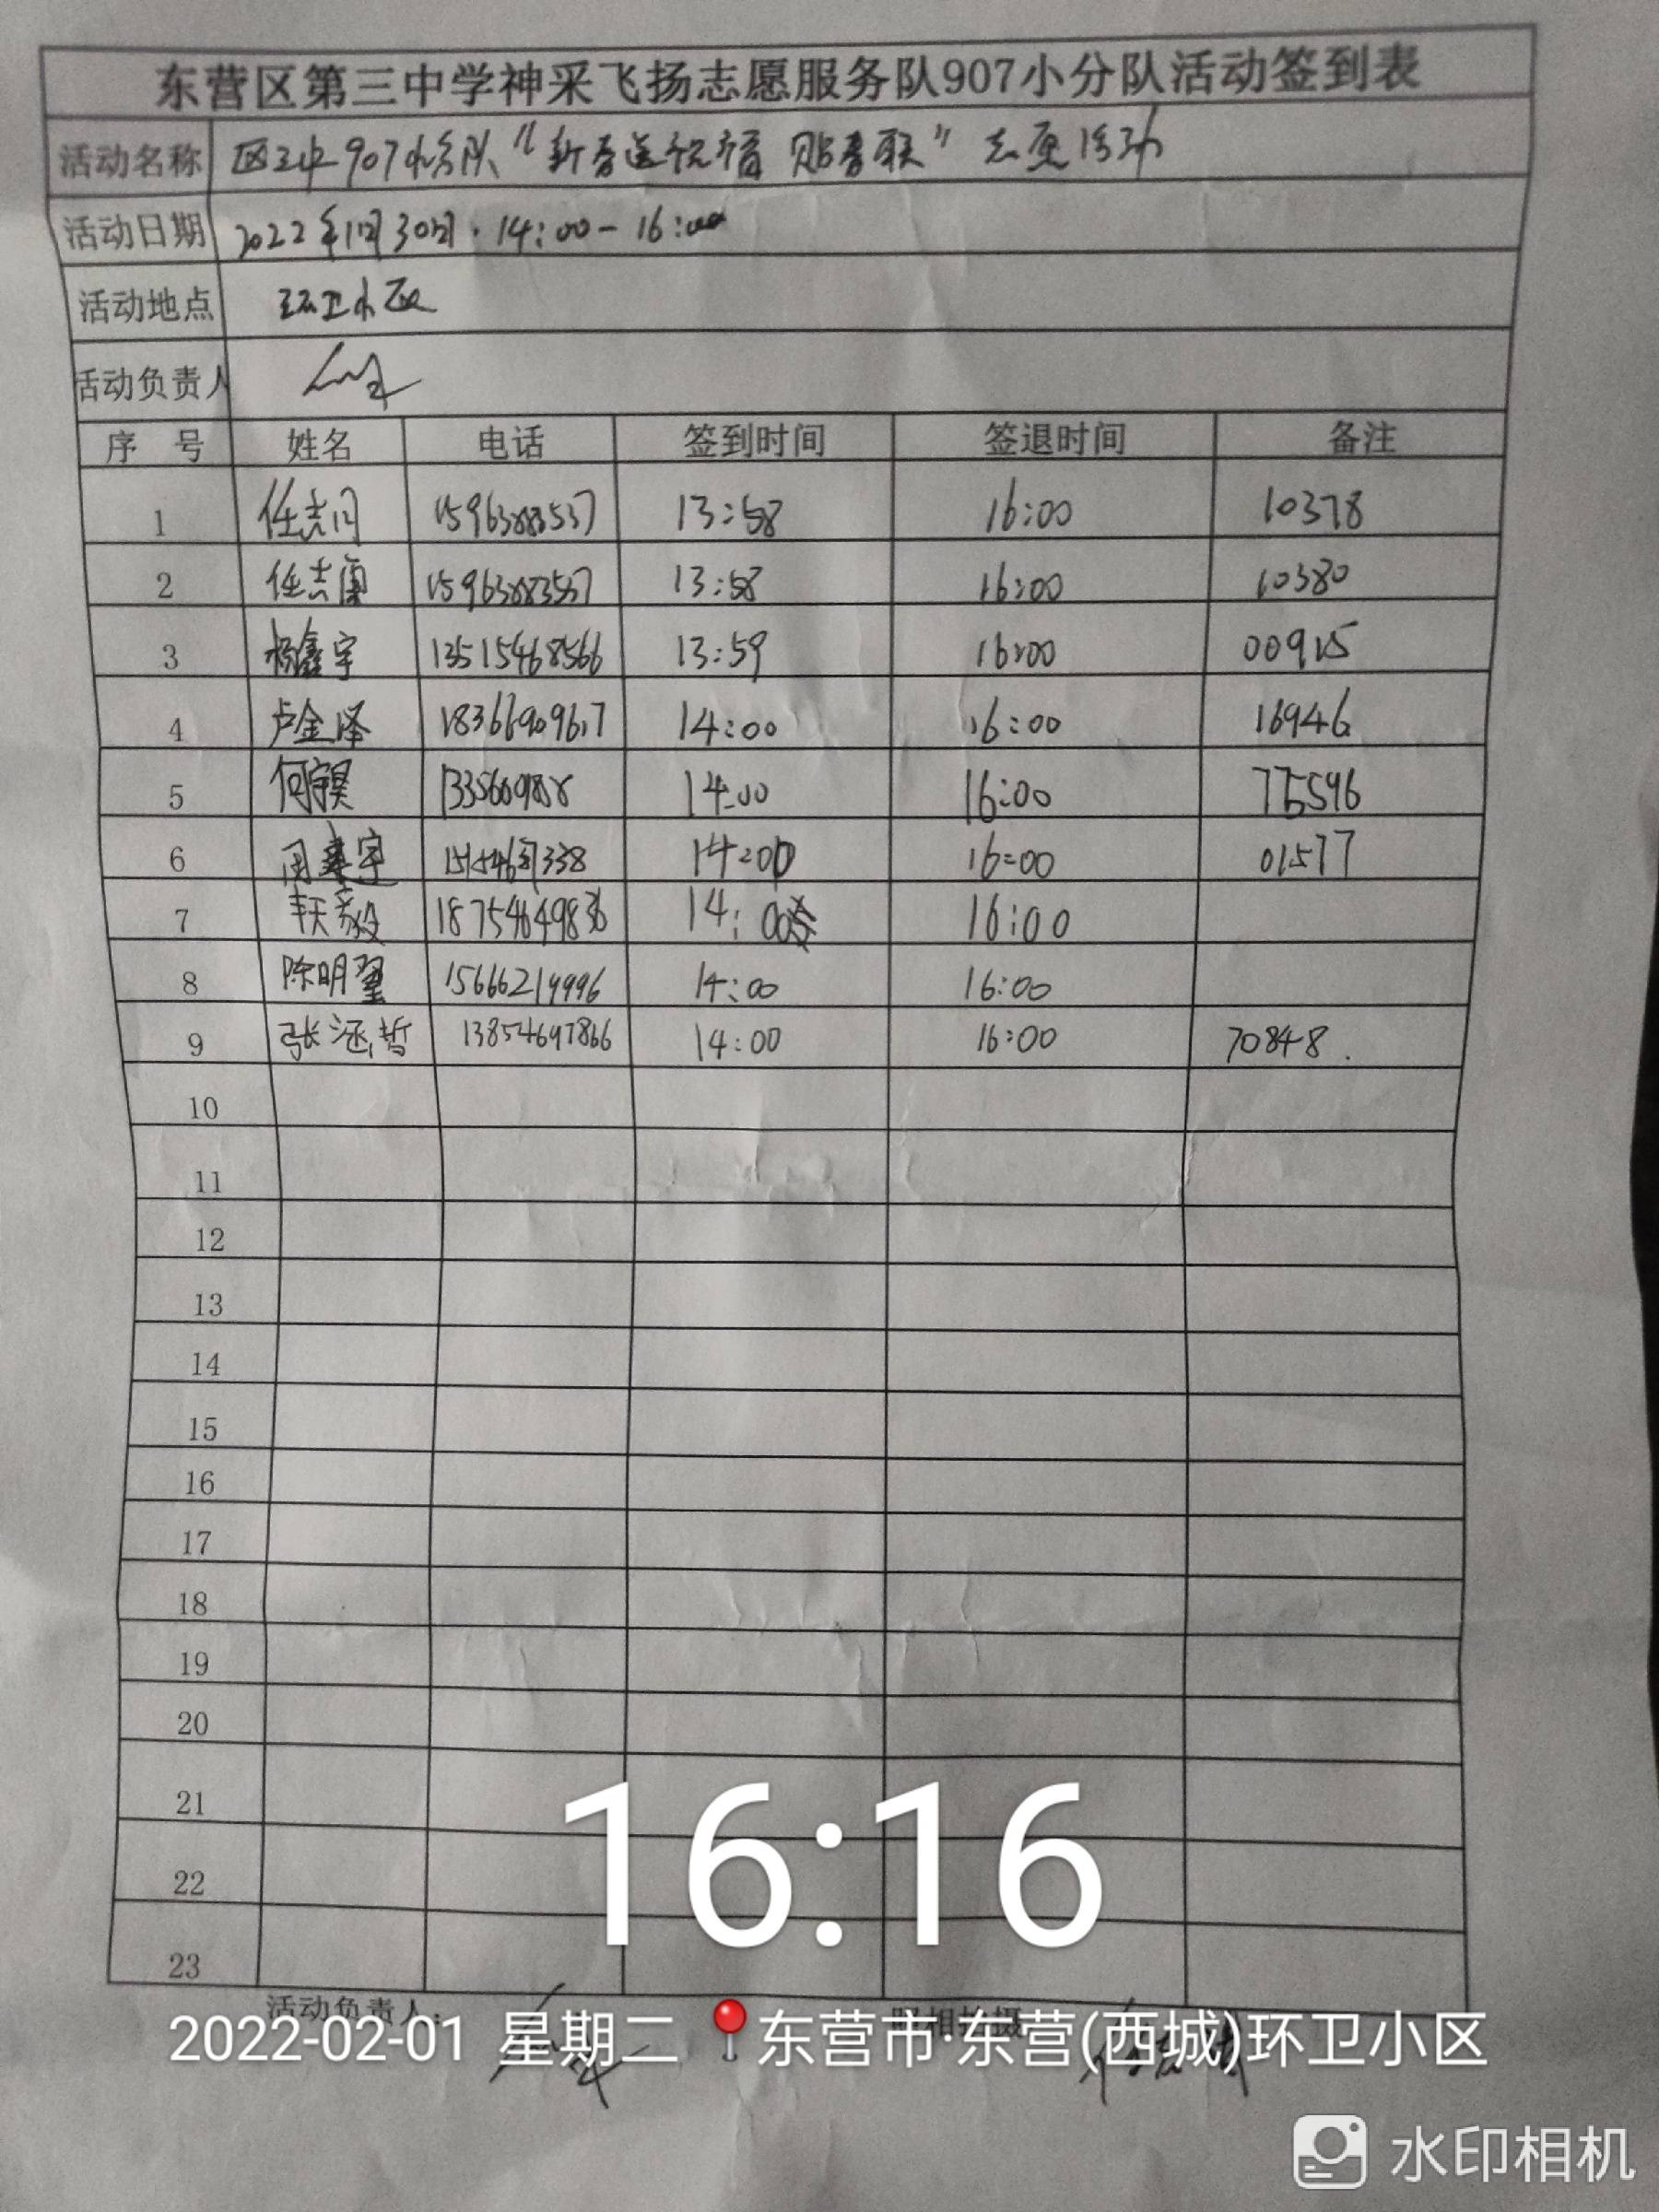 东营区第三中学神采飞扬志愿服务队907小分队活动签到表
活动名称 区三中907小分队“新春送祝福 贴春联”志愿活动
活动日期 2022年1月30日·14:00-16:00
活动地点 环卫小区
活动负责人
序 号 姓名 电话 签到时间 签退时间 备注
1 13:58 16:00 10378
2 13:58 16:00 10380
3 杨鑫宇 13515468566 13:59 16:00 00915
4 卢金泽 18366909617 14:00 16:00 16946
5 何宇昊 14:00 16:00
6 14:00 16:00 01577
7 14:00 16:00
8 陈明 15666219996 14:00 16:00
9 张涵哲 13854697866 14:00 16:00 70848.
10
11
12
13
14
15
16
17
18
19
20
21
22
23
16:16
活动负责人: 照相拍摄
2022-02-01 星期二 东营市·东营(西城)环卫小区
水印相机